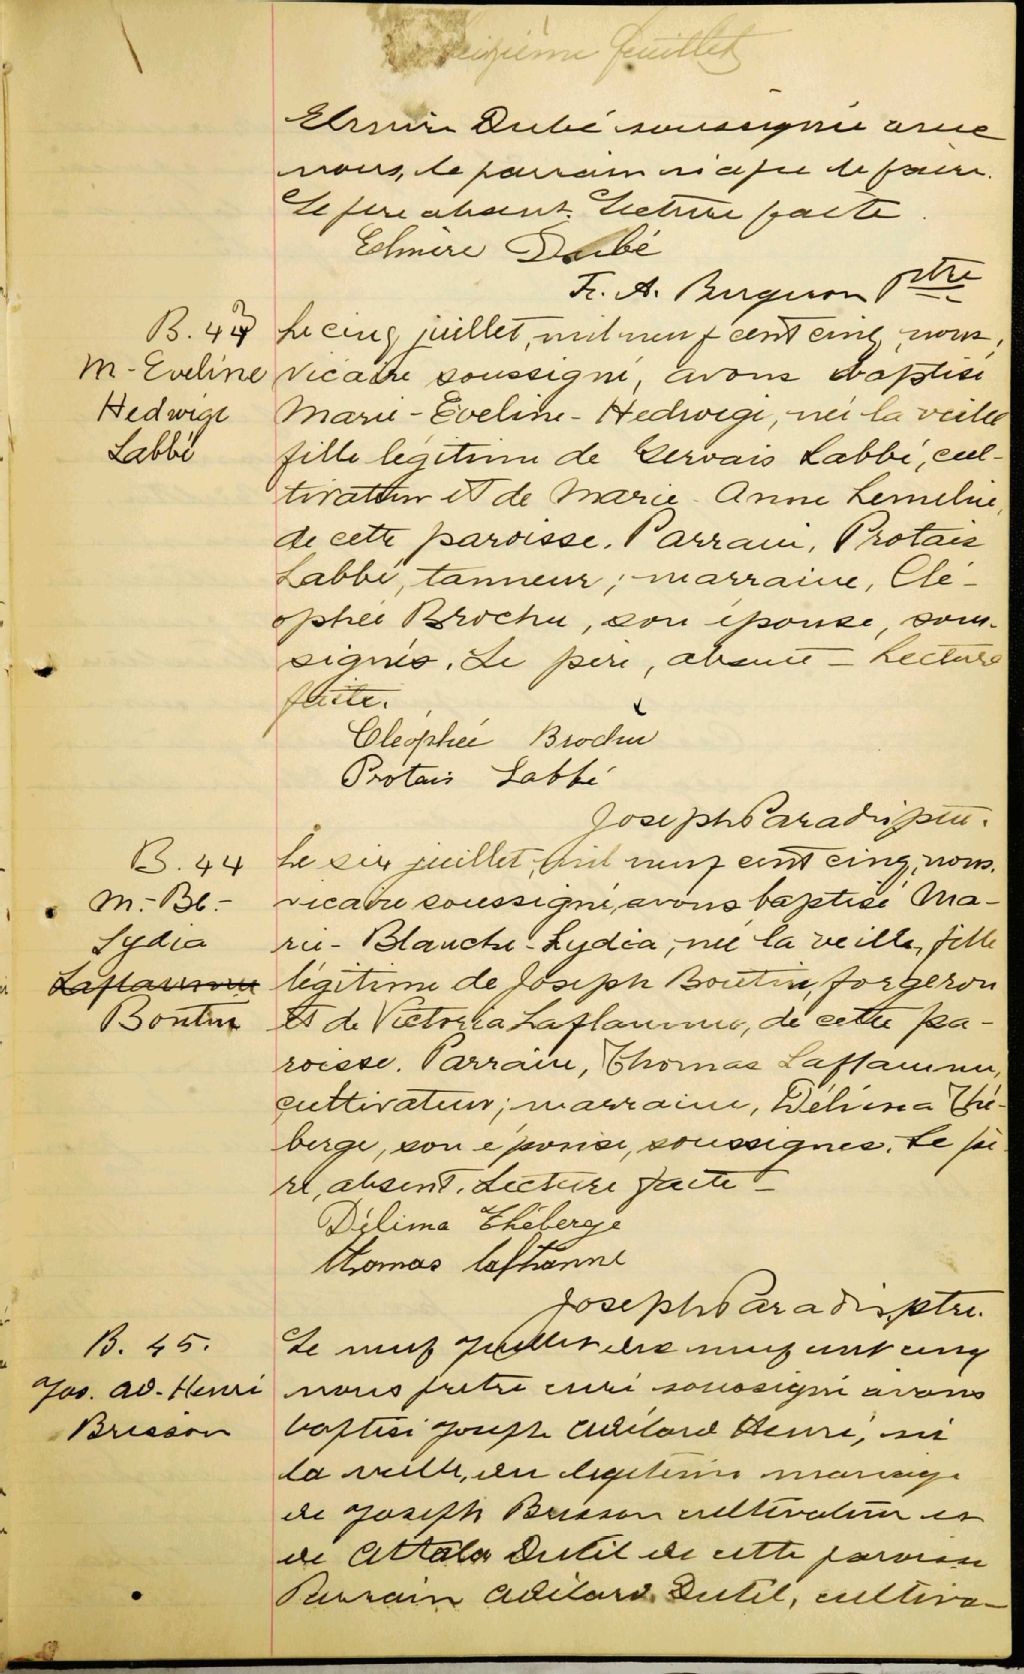 feuillet
Elmire Dubé soussignée avec
nous, le parrain n'a pu le faire.
Le père absent. Lecture faite.
Elmire Dubé
F. A. Bergeron Ptre
B. 43
M-Eveline
Hedwige
Labbé
Le cinq juillet, mil neuf cent cinq, nous,
vicaire soussigné, avons baptisé
Marie-Eveline-Hedwige, née la veille
fille légitime de Gervais Labbé, cul-
tivateur et de Marie-Anne Lemelin,
de cette paroisse. Parrain, Protais
Labbé, tanneur; marraine, Clé-
ophée Brochu, son épouse, sous-
signés. Le père, absent - Lecture
faite.
Cléophée Brochu
Protais Labbé
Joseph Paradis ptre.
B. 44
M.-Bl.-
Lydia
Laflamme
Boutin
Le six juillet, mil neuf cent cinq, nous,
vicaire soussigné, avons baptisé Ma-
rie-Blanche-Lydia, née la veille, fille
légitime de Joseph Boutin, forgeron
et de Victoria Laflamme, de cette pa-
roisse. Parrain, Thomas Laflamme,
cultivateur; marraine, Délima Thé-
berge, son épouse, soussignés. Le pè-
re, absent. Lecture faite -
Délima Théberge
thomas laflamme
Joseph Paradis, ptre.
B. 45.
Jos. Ad-Henri
Brisson
Le neuf Juillet dix neuf cent cinq
nous prêtre curé soussigné avons
baptisé Joseph Adélard Henri, né
la veille, du légitime mariage
de Joseph Brisson cultivateur et
de Attala Dutil de cette paroisse
Parrain Adélard Dutil, cultiva-